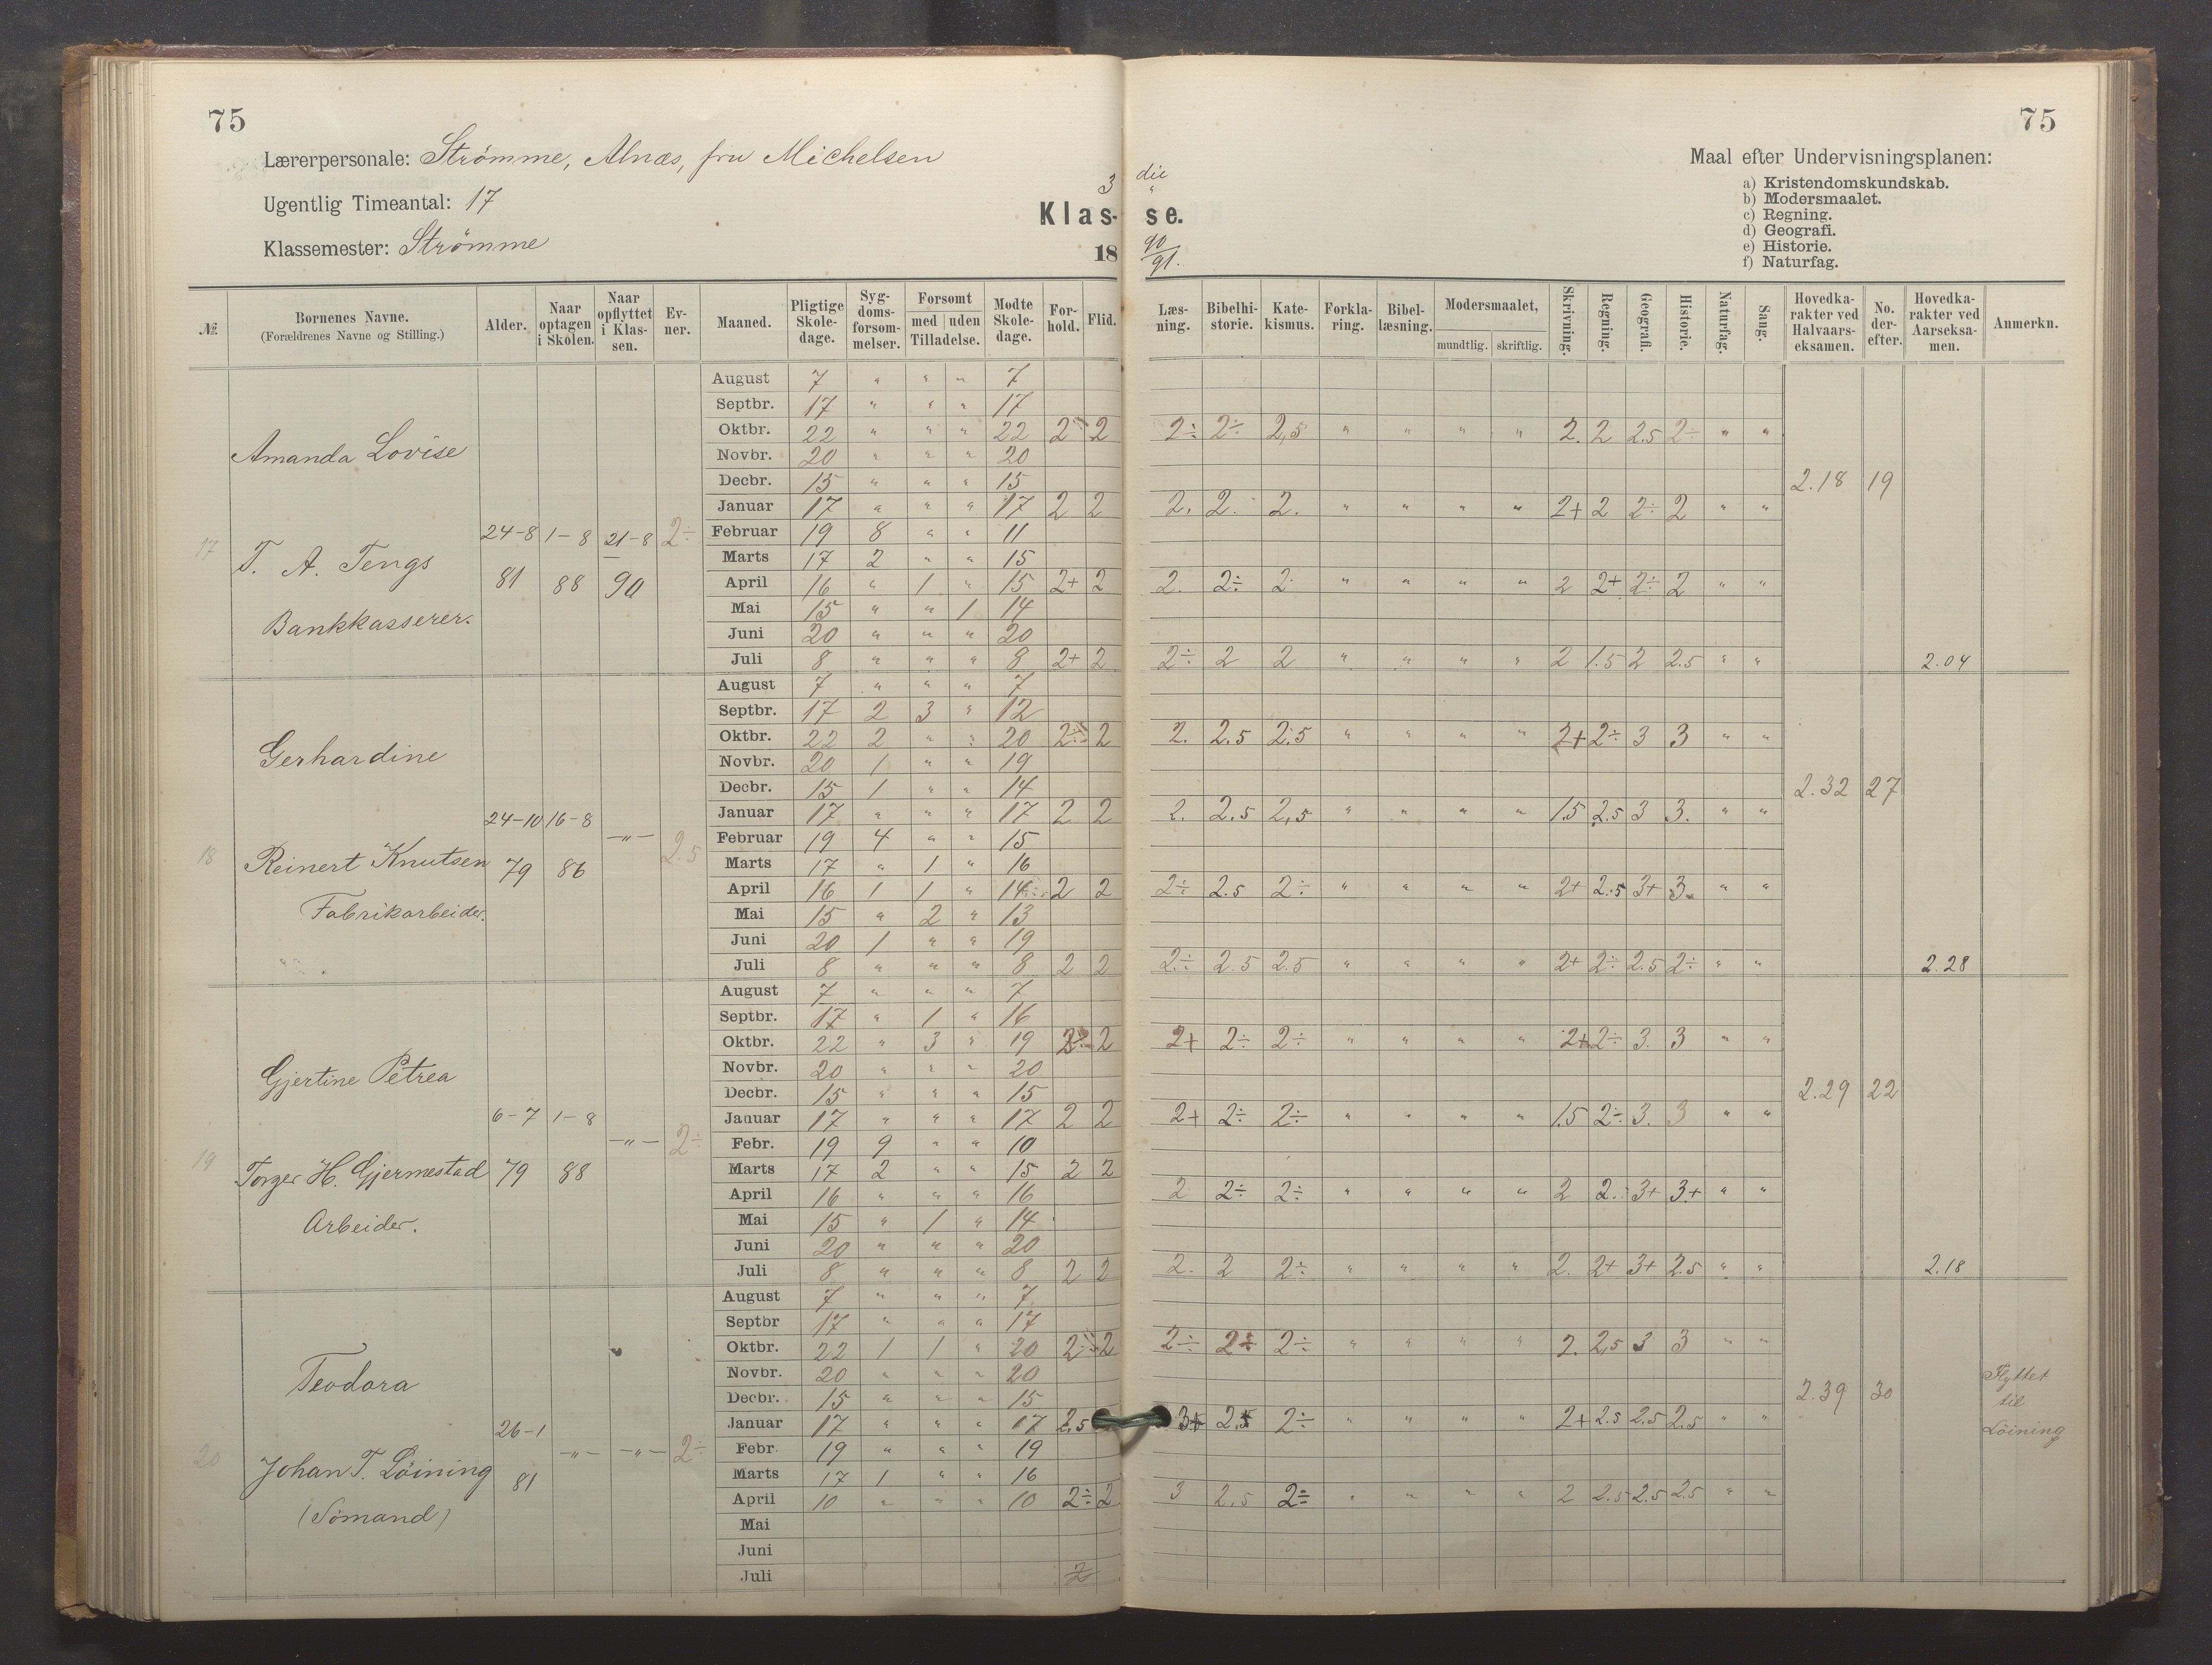 75
75
Lærerpersonale: Strømme, Alnæs, fru Michelsen
Ugentlig Timeantal: 17
Klassemester: Strømme
3 die
Klas- se.
18 90/91.
Maal efter Undervisningsplanen:
a) Kristendomskundskab.
b) Modersmaalet.
c) Regning.
d) Geografi.
e) Historie.
f) Naturfag.
№ Børnenes Navne. (Forældrenes Navne og Stilling.) Alder. Naar optagen i Skolen. Naar opflyttet i Klassen. Evner. Maaned. Pligtige Skoledage. Sygdomsforsømmelser. Forsømt med uden Tilladelse. Mødte Skoledage. Forhold. Flid. Læsning. Bibelhistorie. Katekismus. Forklaring. Bibellæsning. Modersmaalet, mundtlig. skriftlig. Skrivning. Regning. Geografi. Historie. Naturfag. Sang. Hovedkarakter ved Halvaarseksamen. No. derefter. Hovedkarakter ved Aarseksamen. Anmerkn.
17 Amanda Lovise
T. A. Tengs
Bankkasserer.
24-8 81 1-8 88 21-8 90 2÷
August 7 " " " 7
Septbr. 17 " " " 17
Oktbr. 22 " " " 22 2÷ 2 2÷ 2÷ 2,5 " " " " 2. 2 2.5 2÷ " "
Novbr. 20 " " " 20
Decbr. 15 " " " 15 2.18 19
Januar 17 " " " 17 2 2 2. 2. 2. " " " " 2+ 2 2÷ 2 " "
Februar 19 8 " " 11
Marts 17 2 " " 15
April 16 " 1 " 15 2+ 2 2. 2÷ 2 " " " " 2 2+ 2÷ 2 " "
Mai 15 " " 1 14
Juni 20 " " " 20
Juli 8 " " " 8 2+ 2 2÷ 2 2 " " " " 2 1.5 2 2.5 " " 2.04
18 Gerhardine
Reinert Knutsen
Fabrikarbeider.
24-10 79 16-8 86 —"— 2.5
August 7 " " " 7
Septbr. 17 2 3 " 12
Oktbr. 22 2 " " 20 2÷ 2 2. 2.5 2.5 " " " " 2+ 2÷ 3 3 " "
Novbr. 20 1 " " 19
Decbr. 15 1 " " 14 2.32 27
Januar 17 " " " 17 2 2 2. 2.5 2,5 " " " " 1.5 2.5 3 3. " "
Februar 19 4 " " 15
Marts 17 " 1 " 16
April 16 1 1 " 14 2 2 2÷ 2.5 2÷ " " " " 2+ 2.5 3+ 3. " "
Mai 15 " 2 " 13
Juni 20 1 " " 19
Juli 8 " " " 8 2 2 2÷ 2.5 2.5 " " " " 2+ 2÷ 2.5 2÷ " " 2.28
19 Gjertine Petrea
Torger H. Gjermestad
Arbeider.
6-7 79 1-8 88 —"— 2÷
August 7 " " " 7
Septbr. 17 " 1 " 16
Oktbr. 22 " 3 " 19 2 2+ 2÷ 2÷ " " " " 2+ 2÷ 3. 3 " "
Novbr. 20 " " " 20
Decbr. 15 " " " 15 2.29 22
Januar 17 " " " 17 2 2 2+ 2÷ 2÷ " " " " 1.5 2÷ 3. 3 " "
Febr. 19 9 " " 10
Marts 17 2 " " 15 2 2
April 16 " " " 16 2 2÷ 2÷ " " " " 2 2. 3+ 3+ " "
Mai 15 " 1 " 14
Juni 20 " " " 20
Juli 8 " " " 8 2 2 2. 2 2÷ " " " " 2. 2+ 3+ 2.5 " " 2.18
20 Teodora
Johan T. Löining
(Sömand)
26-1 81 —"— —"— 2÷
August 7 " " " 7
Septbr 17 " " " 17
Oktbr. 22 1 1 " 20 2÷ 2 2÷ 2÷ 2÷ " " " " 2. 2,5 3 3 " "
Novbr. 20 " " " 20
Decbr. 15 " " " 15 2.39 30
Januar 17 " " " 17 2,5 3+ 2,5 2÷ " " " " 2+ 2.5 2.5 2.5 " "
Febr. 19 " " " 19
Marts 17 1 " " 16
April 10 " " " 10 2÷ 2 3 2.5 2÷ " " " " 2 2.5 2.5 2.5 " "
Mai
Juni
Juli 2
Flyttet
til
Löining